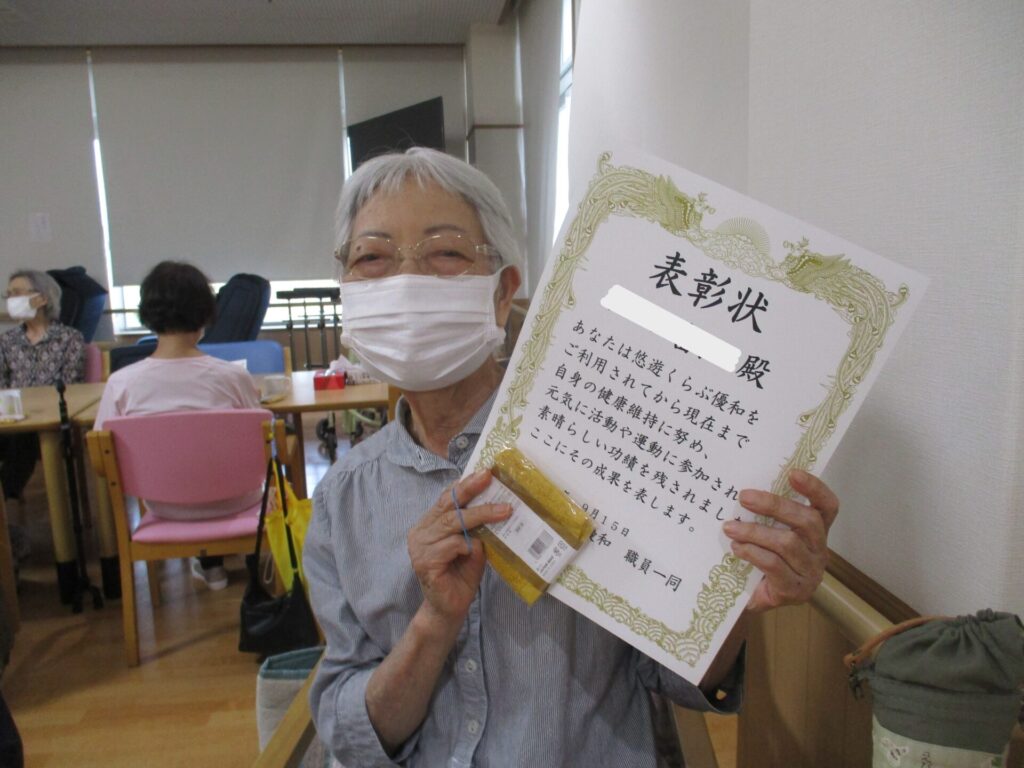 表彰状
殿
あなたは悠遊くらぶ優和を
ご利用されてから現在まで
自身の健康維持に努め、
元気に活動や運動に参加され
素晴らしい功績を残されまし
ここにその成果を表します。
9月15日
和 職員一同